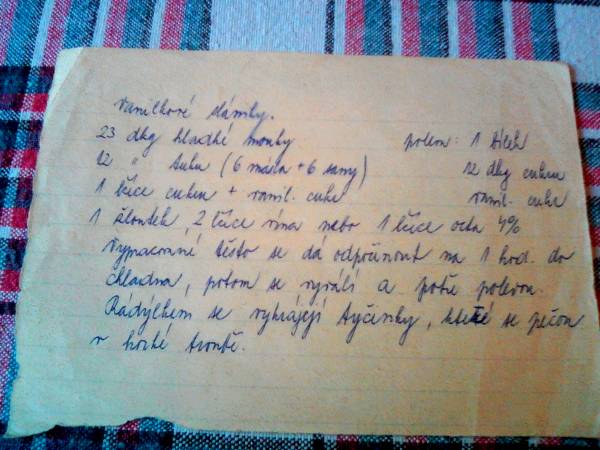 Vanilkové slámky.
23 dkg hladké mouky polem: 1 bílek
12 " tuku (6 másla + 6 sany) 12 dkg cukru
1 lžíce cukru + vanil. cukr vanil. cukr
1 žloutek, 2 lžíce vína nebo 1 lžíce octa 4%
Vypracované těsto se dá odpočinout na 1 hod. do
chladna, potom se vyválí a potře polevou.
Rádýlkem se vykrájejí tyčinky, které se pečou
v horké troubě.